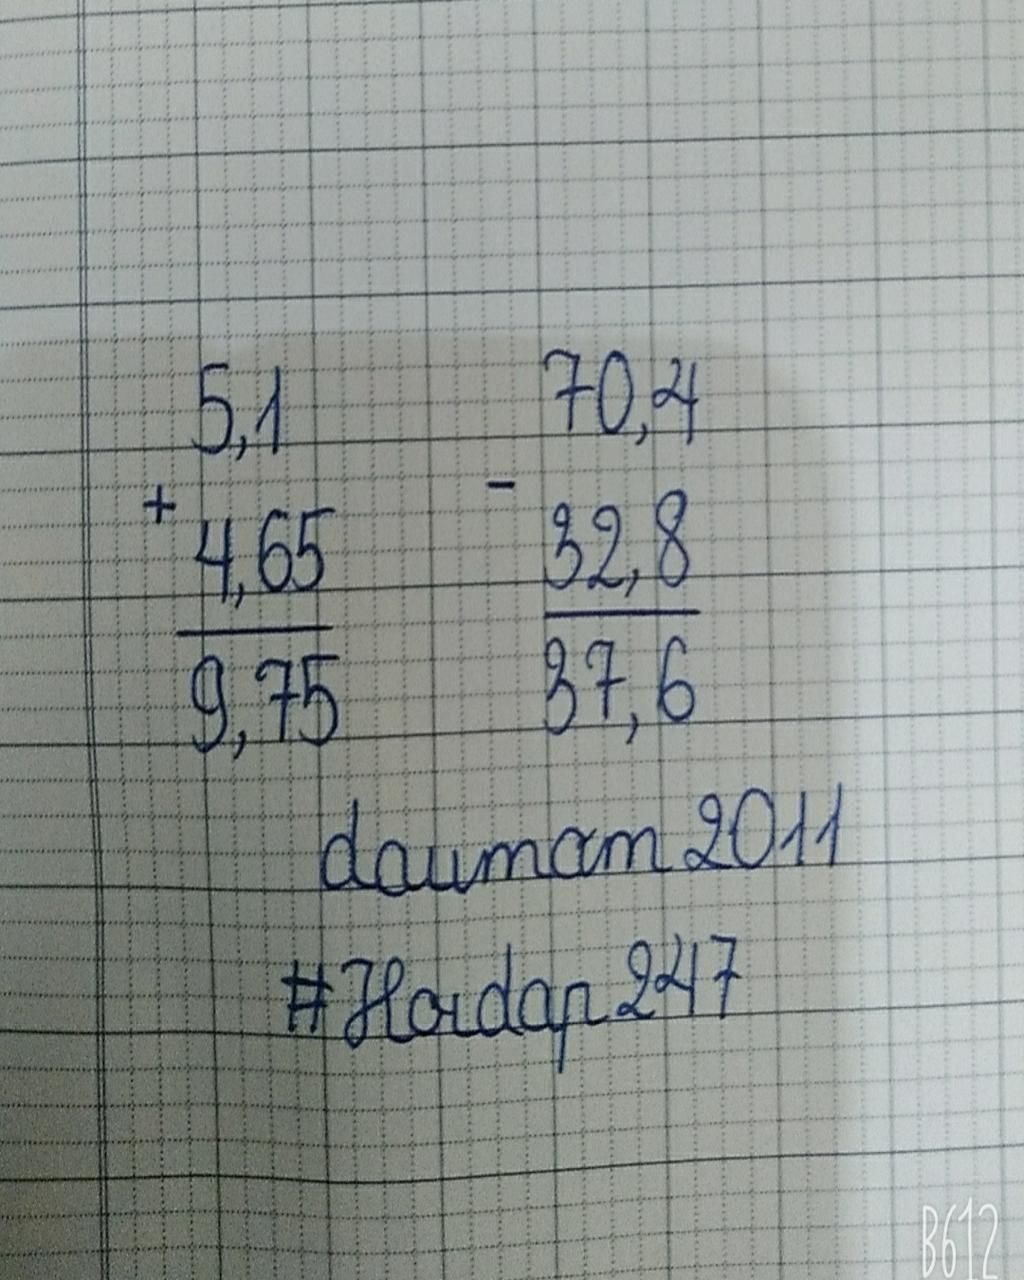 5,1
+
4,65
9,75
70,4
-
32,8
37,6
daumam2011
#Hoidap247
B612